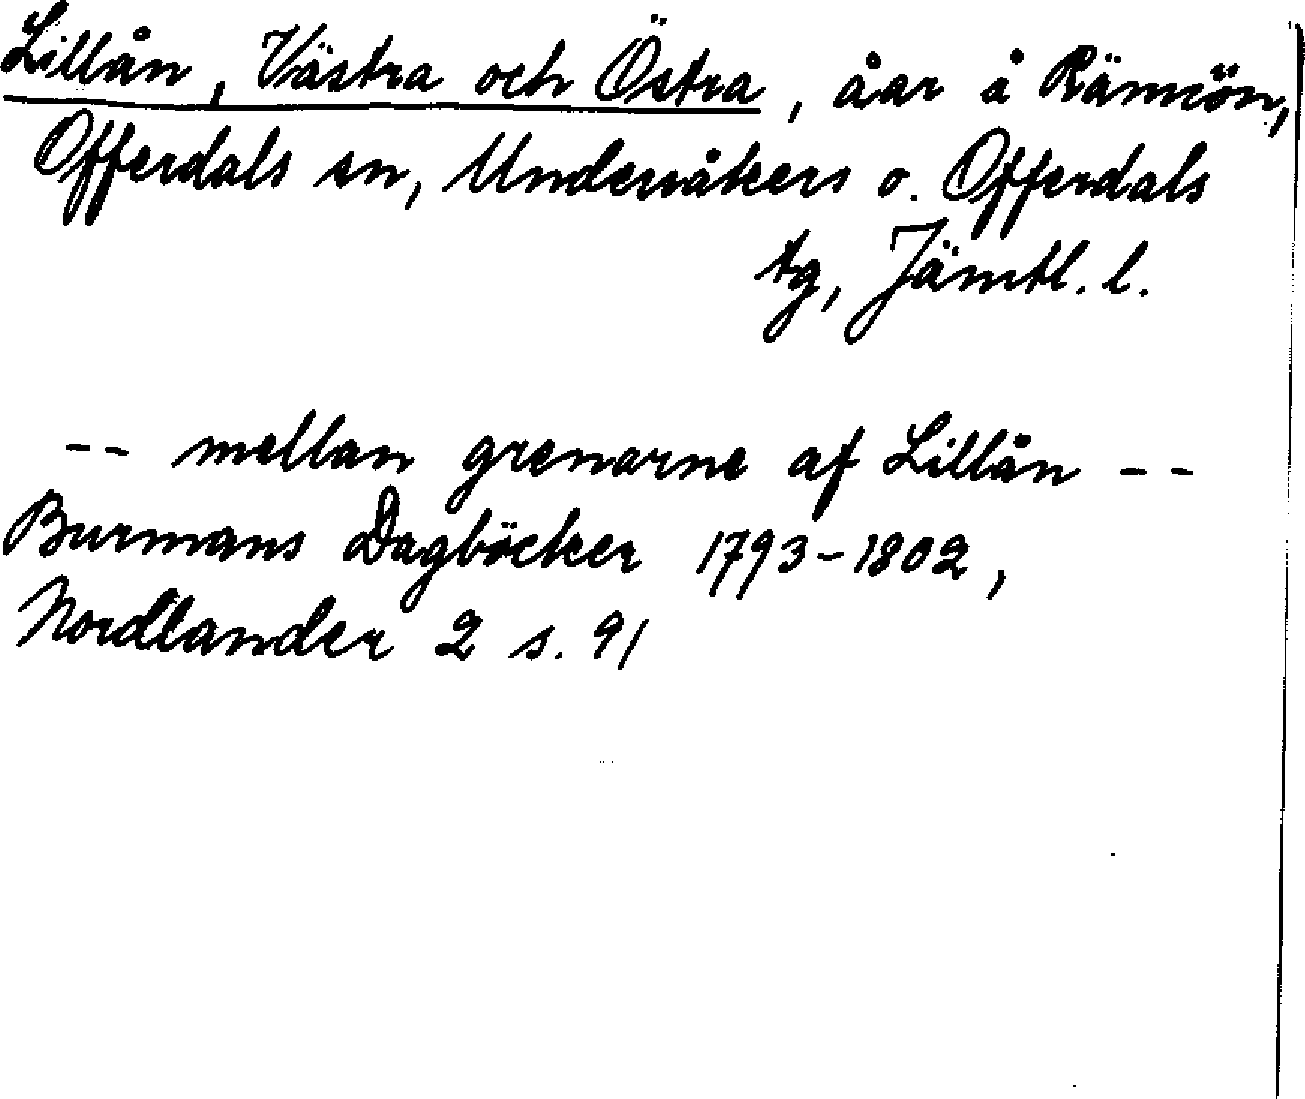 Lillån, Västra och Östra, åar å Rännön,
Offerdals sn, Undersåkers o. Offerdals
tg, Jämtl. l.
-- mellan grenarne af Lillån --
Burmans Dagböcker 1793-1802,
Nordlander 2 s. 91